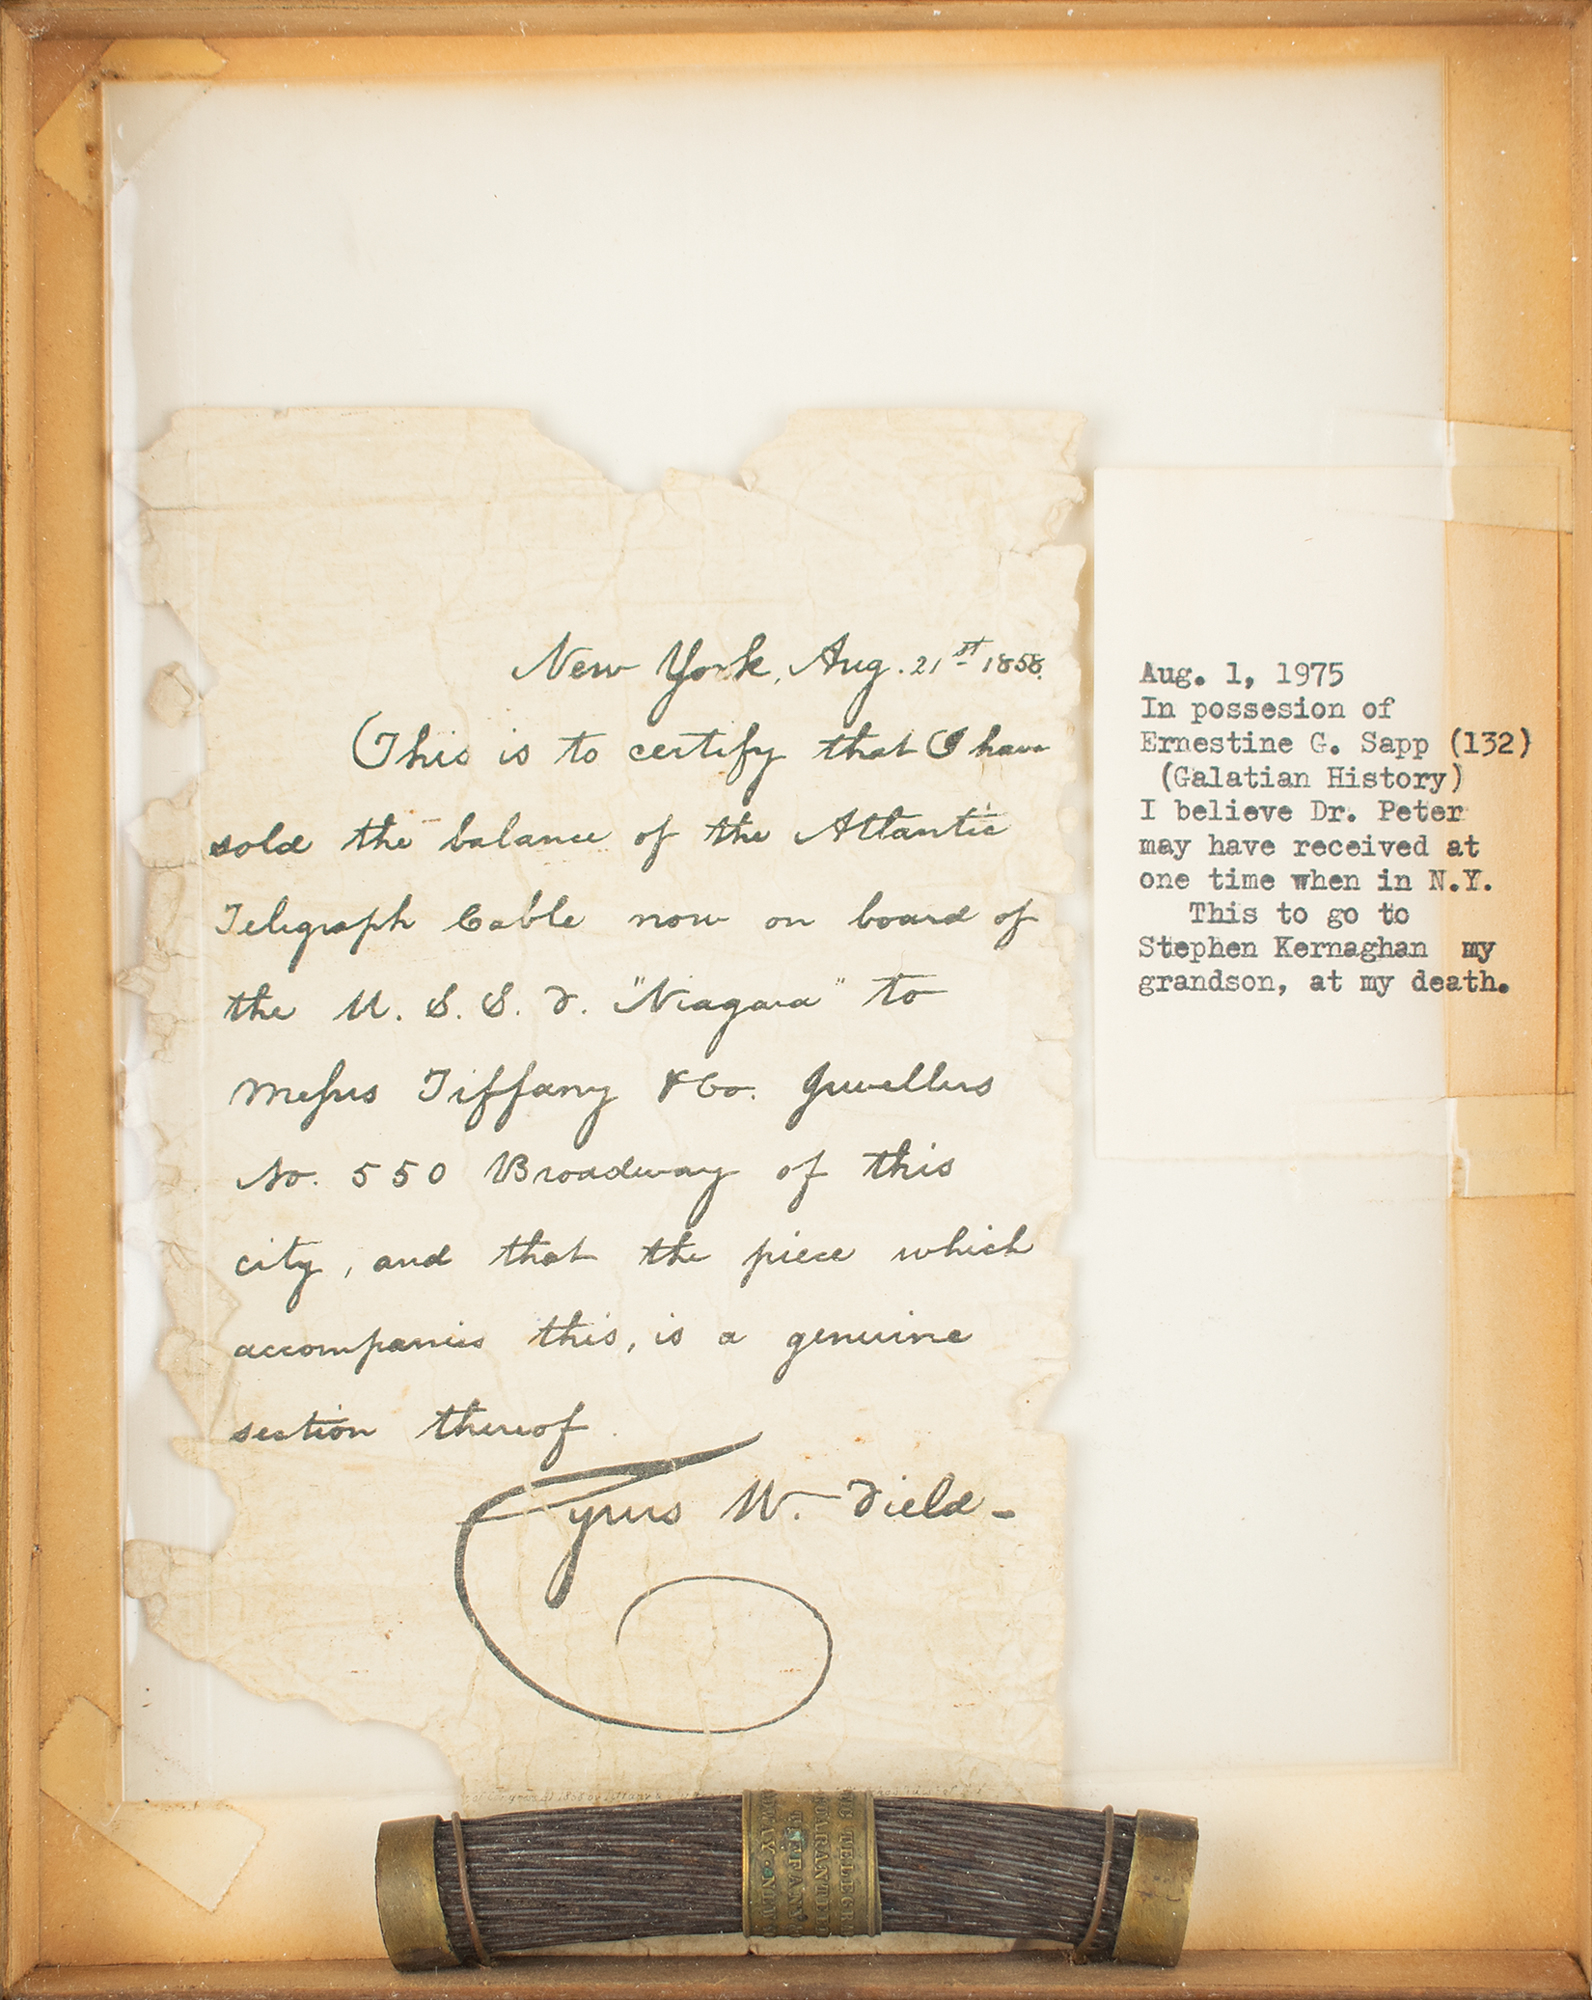 New York, Aug. 21st 1858.
This is to certify that I have
sold the balance of the Atlantic
Telegraph Cable now on board of
the U. S. S. F. "Niagara" to
Messrs Tiffany & Co. Jewellers
No. 550 Broadway of this
city, and that the piece which
accompanies this, is a genuine
section thereof.
Cyrus W. Field-
Aug. 1, 1975
In possesion of
Ernestine G. Sapp (132)
(Galatian History)
I believe Dr. Peter
may have received at
one time when in N.Y.
This to go to
Stephen Kernaghan my
grandson, at my death.
TELEGR
GUARANTE
TIFFANY
WAY